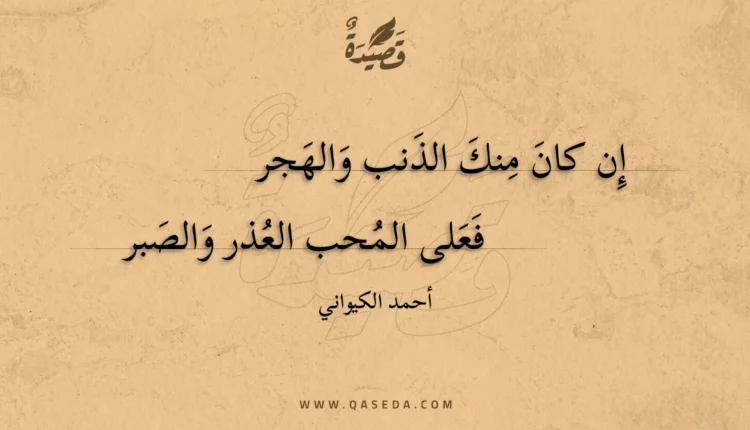 قَصِيْدَةٌ
إِن كانَ مِنكَ الذَنب وَالهَجر
فَعَلى المُحب العُذر وَالصَبر
أحمد الكيواني
WWW.QASEDA.COM